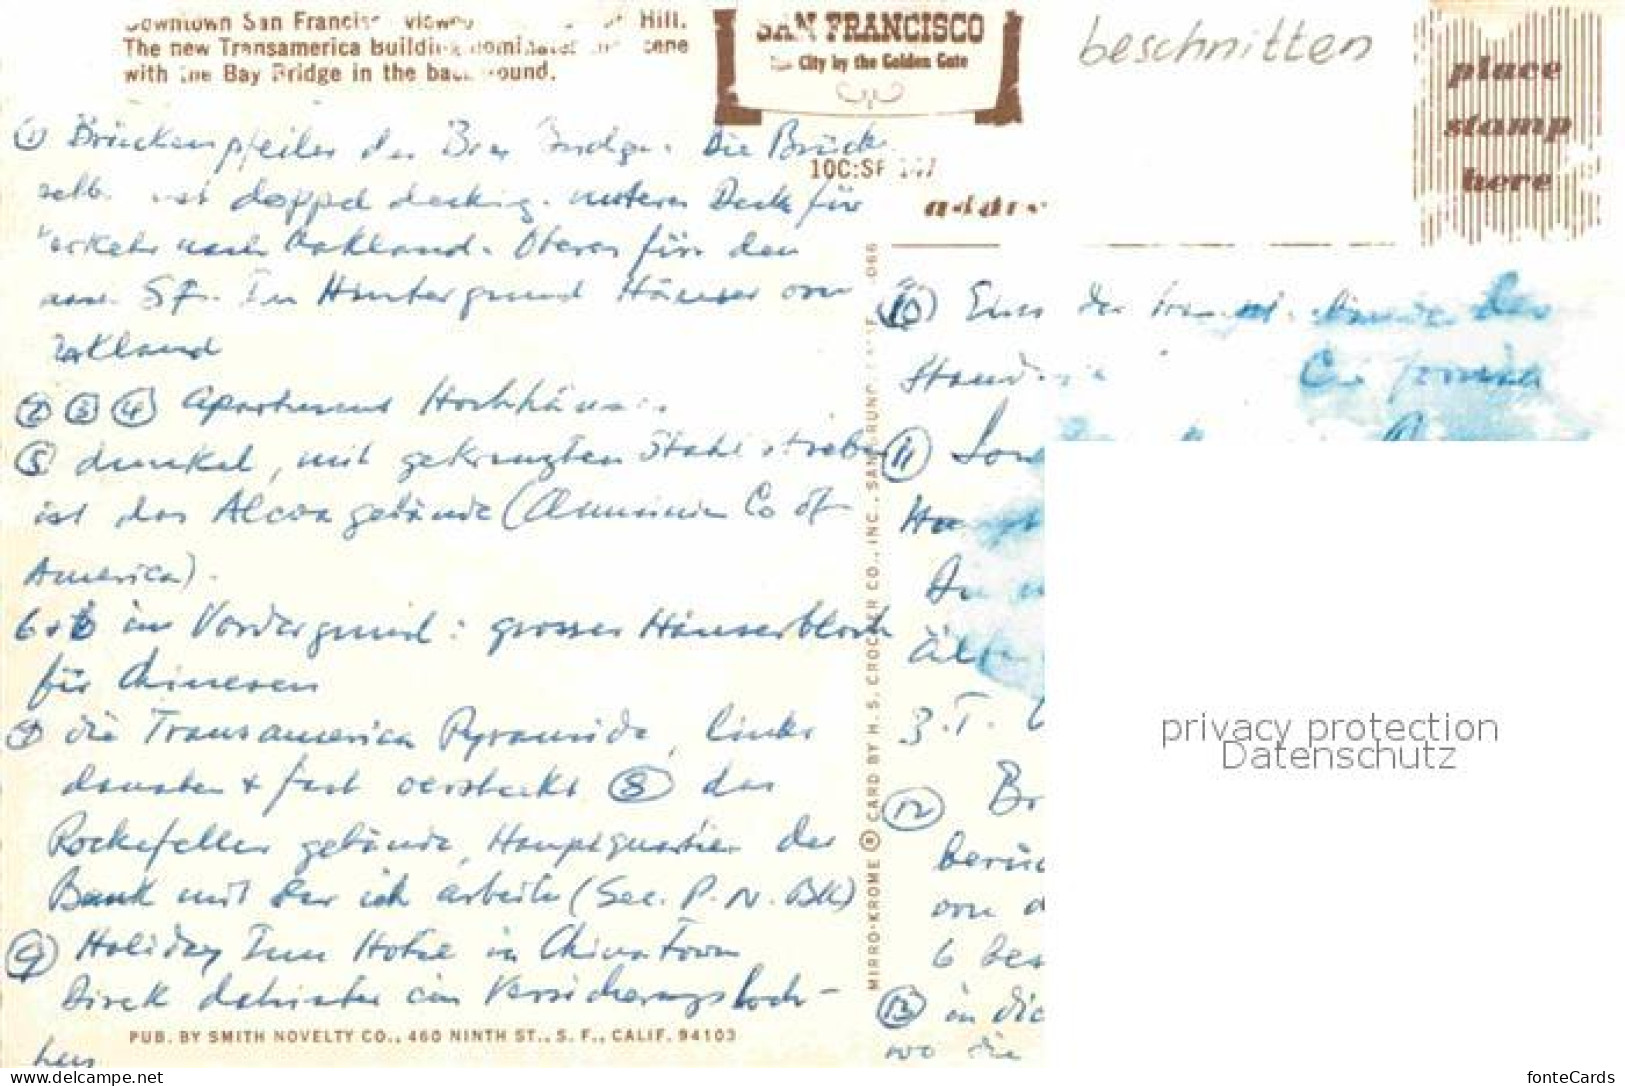 Downtown San Francisco viewed Hill.
The new Transamerica Building dominates the scene
with the Bay Bridge in the background.
SAN FRANCISCO
The City by the Golden Gate
beschnitten
place
stamp
here
10C:SF
address
① Brückenpfeiler der Bay Bridge. Die Brücke
selbst ist doppel deckig. unteres Deck für
Verkehr nach Oakland. Oberes für den
nach SF. Im Hintergrund Häuser von
Oakland
② ③ ④ Apartment Hochhäuser
⑤ dunkel, mit gekreuzten Stahlstreben
ist das Alcoa gebäude (Aluminium Co of
America).
6+6 im Vordergrund: grosser Häuserblock
für Chinesen
⑦ die Transamerica Pyramide, links
daneben + fast versteckt ⑧ das
Rockefeller gebäude, Hauptquartier der
Bank mit der ich arbeite (Sec. P. N. Bk)
⑨ Holiday Inn Hotel in Chinatown
Direkt dahinter ein Versicherungshoch-
haus
PUB. BY SMITH NOVELTY CO., 460 NINTH ST., S. F., CALIF. 94103
MIRRO-KROME ® CARD BY H. S. CROCKER CO., INC., SAN BRUNO, CALIF.
⑩ Eins der
⑪
Haupt
3.T.
⑫ Br
berü
von d
6 bes
⑬ in die
wo die
privacy protection
Datenschutz
www.delcampe.net
fonteCards